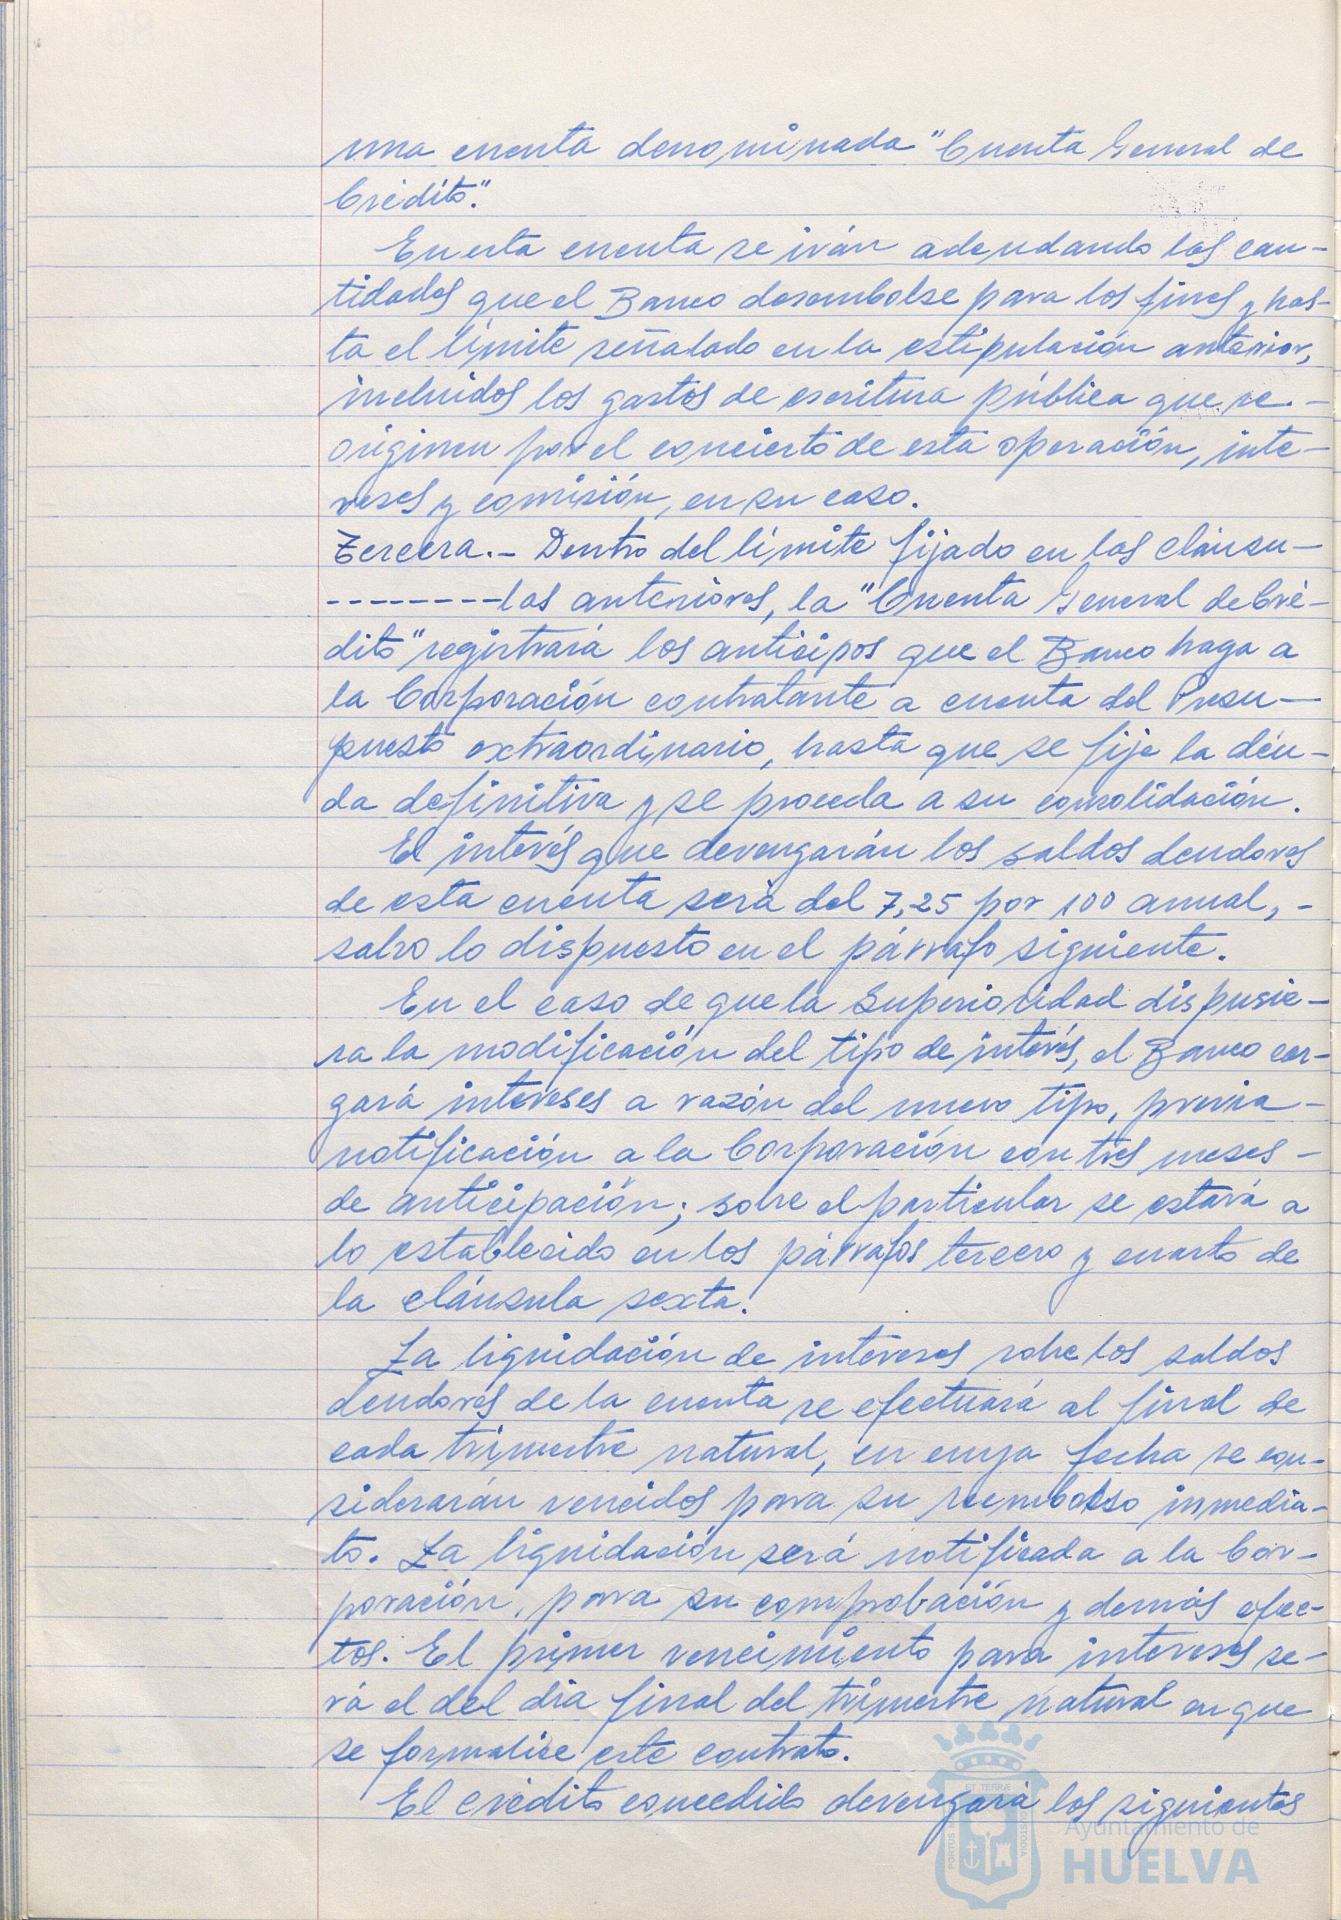 una cuenta denominada "Cuenta General de
Crédito".
En esta cuenta se irán adeudando las can-
tidades que el Banco desembolse para los fines y has-
ta el límite señalado en la estipulación anterior,
incluidos los gastos de escritura pública que se -
originen por el concierto de esta operación, inte-
reses y comisión, en su caso.
Tercera.- Dentro del límite fijado en las cláusu-
---------las anteriores, la "Cuenta General de Cré-
dito" registrará los anticipos que el Banco haga a
la Corporación contratante a cuenta del Presu-
puesto extraordinario, hasta que se fije la deu-
da definitiva y se proceda a su consolidación.
El interés que devengarán los saldos deudores
de esta cuenta será del 7,25 por 100 anual, -
salvo lo dispuesto en el párrafo siguiente.
En el caso de que la Superioridad dispusie-
ra la modificación del tipo de interés, el Banco car-
gará intereses a razón del nuevo tipo, previa -
notificación a la Corporación con tres meses -
de anticipación; sobre el particular se estará a
lo establecido en los párrafos tercero y cuarto de
la cláusula sexta.
La liquidación de intereses sobre los saldos
deudores de la cuenta se efectuará al final de
cada trimestre natural, en cuya fecha se con-
siderarán vencidos para su reembolso inmedia-
to. La liquidación será notificada a la Cor-
poración, para su comprobación y demás efec-
tos. El primer vencimiento para intereses se-
rá el del día final del trimestre natural en que
se formalice este contrato.
El crédito concedido devengará los siguientes
Ayuntamiento de
HUELVA